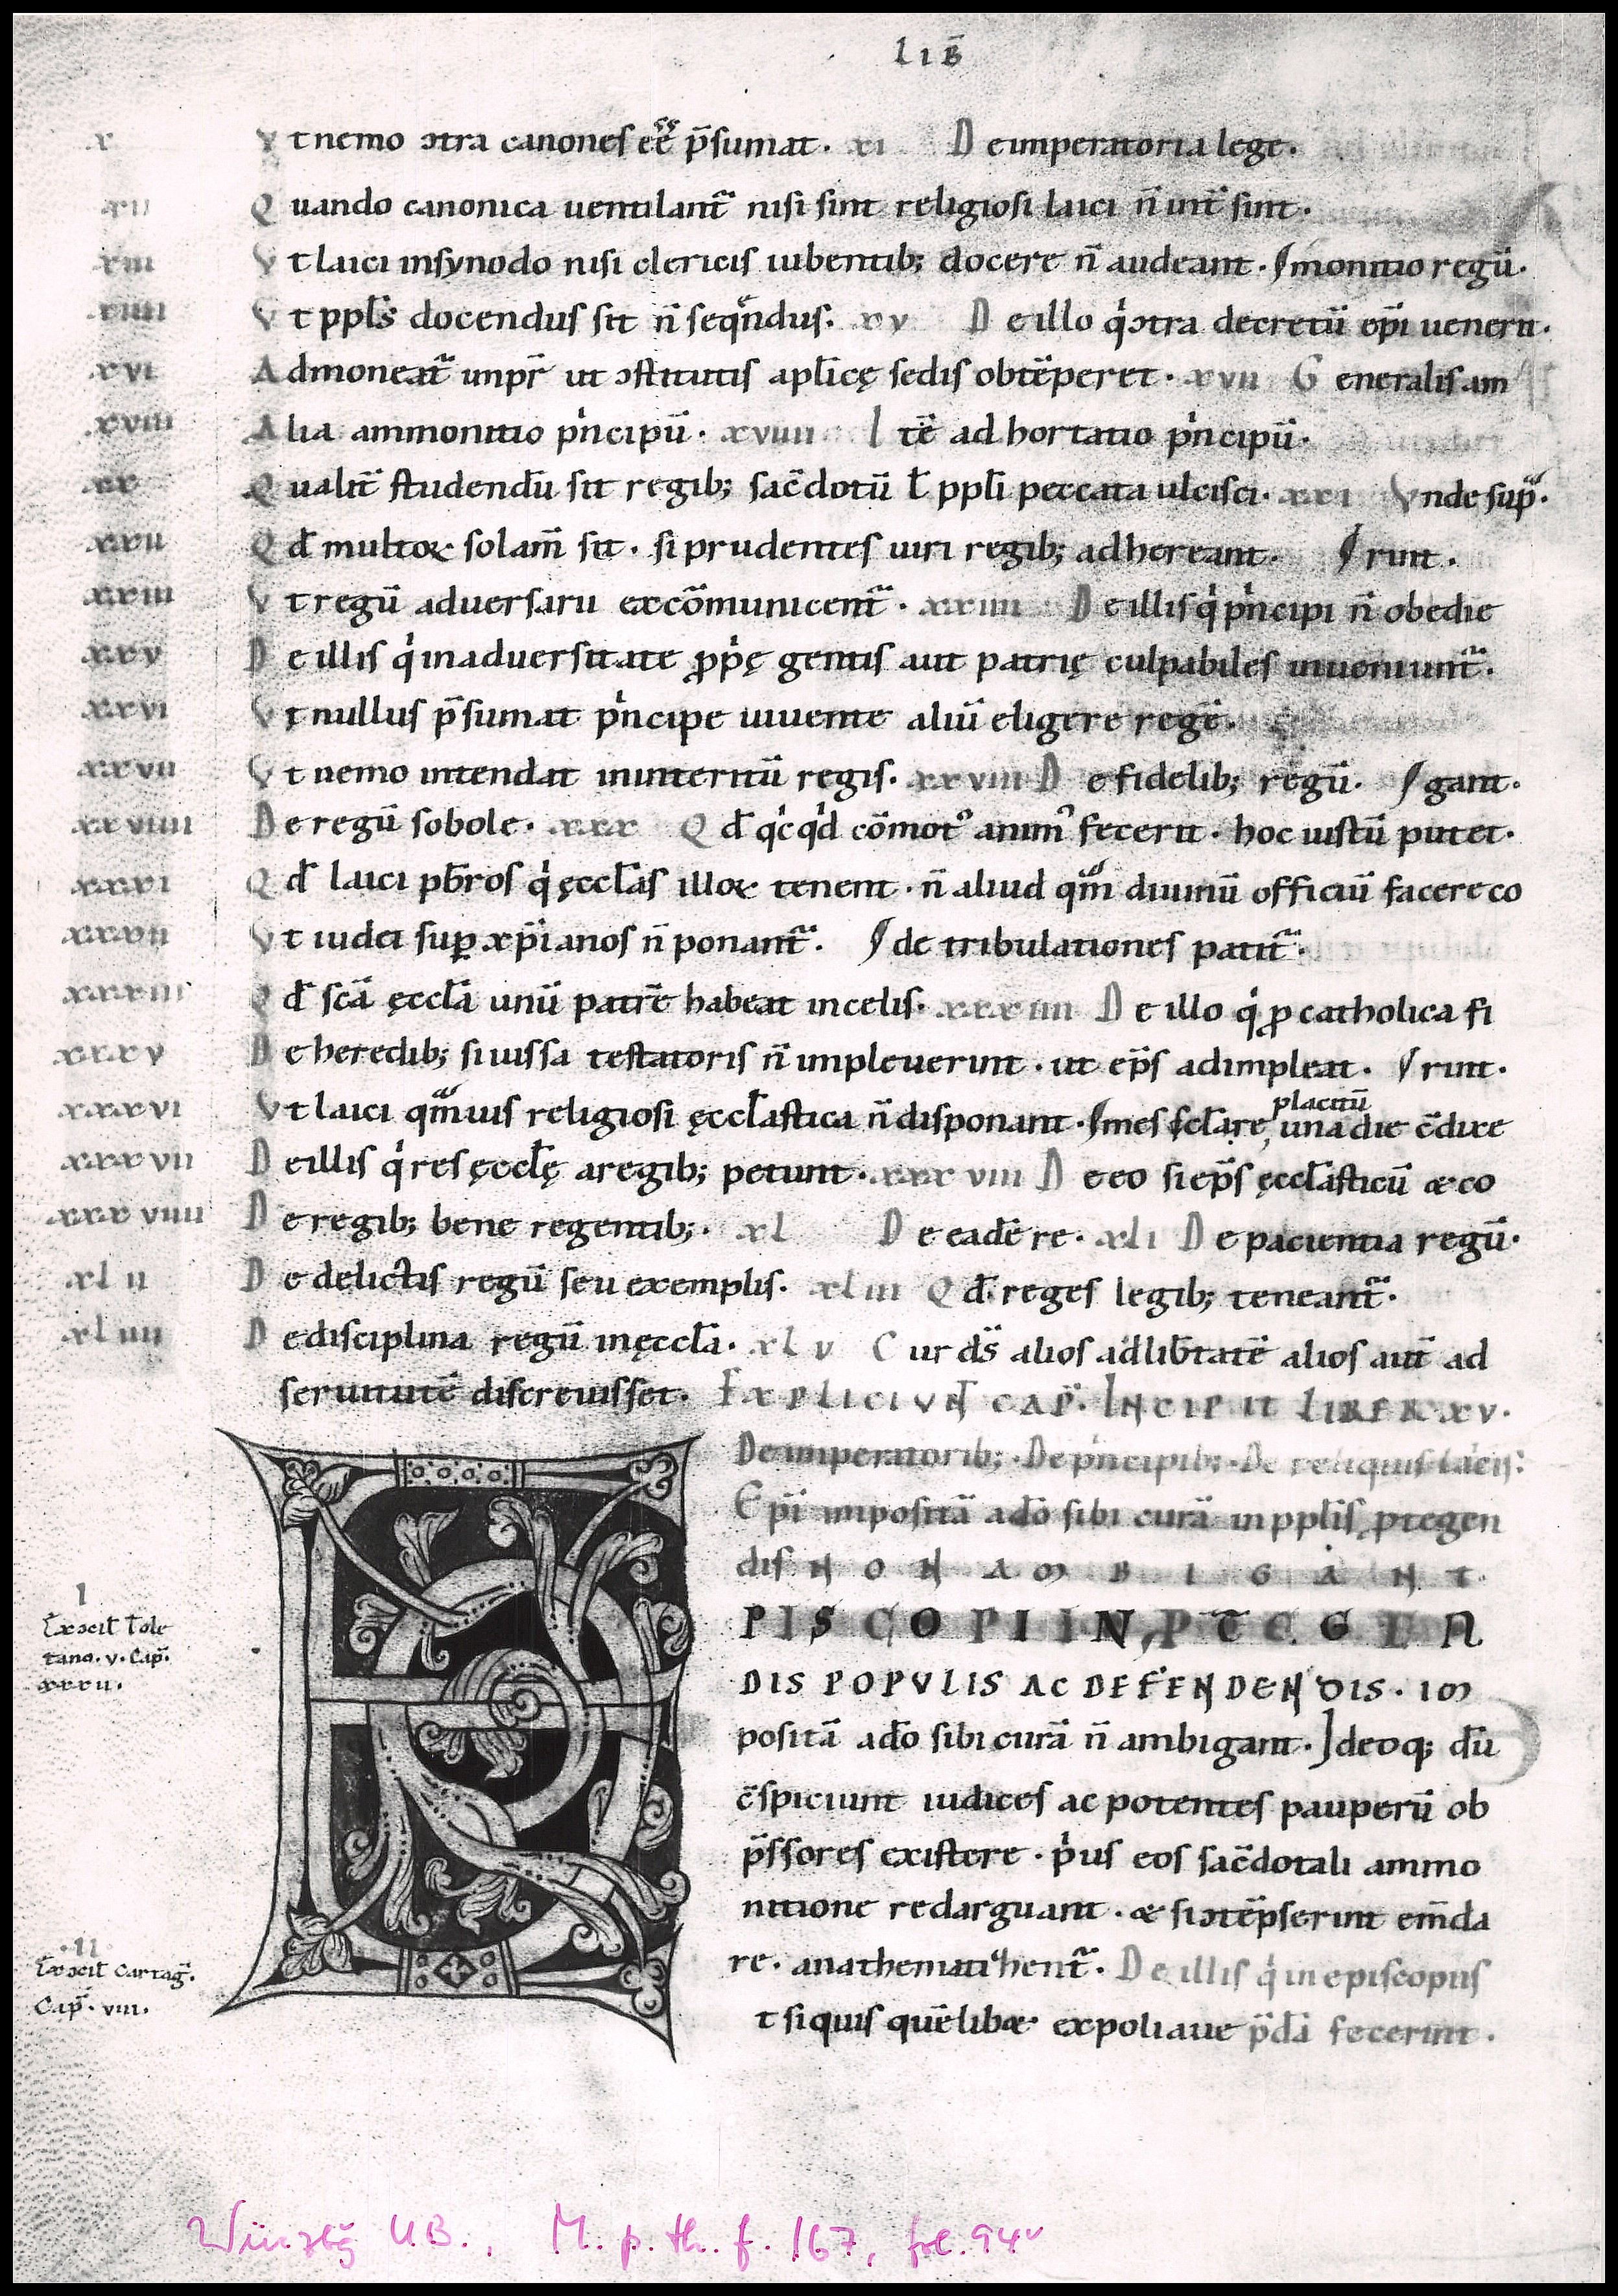 LIB̄
x Vt nemo ɔtra canones eē p̄sumat. xi De imperatoria lege.
xii Quando canonica uentilant᷑ nisi sint religiosi laici n̄ int̄ sint.
xiii Vt laici insynodo nisi clericis iubentib; docere n̄ audeant. monitio regū.
xiiii Vt ppl̄s docendus sit n̄ seqͣndus. xv De illo qͥ ɔtra decretū ep̄i uenerit.
xvi Admoneat᷑ impr̄ ut ɔstitutis apl̄icę sedis obtēperet. xvii Generalis am
xviii Alia ammonitio pͥncipū. xviiii Itē ad hortatio pͥncipū.
xx Qualit̄ studendū sit regib; sac̄dotū ł ppl̄i peccata ulcisci. xxi Vnde supͣ.
xxii Qd̄ multoꝝ solam̄ sit. si prudentes uiri regib; adhereant. rint.
xxiii Vt regū aduersarii excōmunicent᷑. xxiiii De illis qͥ pͥncipi n̄ obedie
xxv De illis qͥ inaduersitate ꝓpͥę gentis aut patrię culpabiles inueniunt᷑.
xxvi Vt nullus p̄sumat pͥncipe uiuente aliū eligere regē.
xxvii Vt nemo intendat ininteritū regis. xxviii De fidelib; regū. gant.
xxviiii De regū sobole. xxx Qd̄ qͥcqͥd cōmotꝰ animꝰ fecerit. hoc iustū putet.
xxxi Qd̄ laici pb̄ros qͥ ęccl̄as illoꝝ tenent. n̄ aliud qͣm diuinū officiū facere co
xxxii Vt iudei suꝑ xp̄ianos n̄ ponant᷑. de tribulationes patit᷑.
xxxiii Qd̄ sc̄a ęccl̄a unū patrē habeat incelis. xxxiiii De illo qͥ ꝓ catholica fi
xxxv De heredib; si iussa testatoris n̄ impleuerint. ut ep̄s adimpleat. rint.
placitū
xxxvi Vt laici qͣmuis religiosi ęccl̄astica n̄ disponant. mes sclare, una die c̄dixe
xxxvii De illis qͥ res ęccl̄ę aregib; petunt. xxxviii De eo si ep̄s ęccl̄asticū & co
xxxviiii De regib; bene regentib;. xl De eadē re. xli De pacientia regū.
xlii De delictis regū seu exemplis. xliii Qd̄ reges legib; teneant᷑.
xliiii De disciplina regū inęccl̄a. xlv Cur d̄s alios adlib̄tatē alios aut̄ ad
seruitutē discreuisset. EXPLICIVNT CAP̄. INCIPIT LIBER XV.
De imperatorib; . De pͥncipib; . De reliquis laicis:
Ep̄i impositā ad̄o sibi curā inppl̄is ꝓtegen
dis NON AMBIGANT
E PISCOPI IN PTEGEN
DIS POPVLIS AC DEFENDENDIS. IM
positā ad̄o sibi curā n̄ ambigant. Ideoq; dū
c̄spiciunt iudices ac potentes pauperū ob
p̄ssores existere. pͥus eos sac̄dotali ammo
nitione redarguant. & si ɔtēpserint em̄da
re. anathematihent᷑. De illis qͥ inepiscopiis
t siquis quēlib& expoliaue p̄dā fecerint.
I
Ex ɔcil̄ Tole
tano. v. Cap̄.
xxxii.
.II
Ex ɔcil̄ Cartag̃.
Cap̄. viii.
Würzbg UB., M. p. th. f. 167, fol. 94v